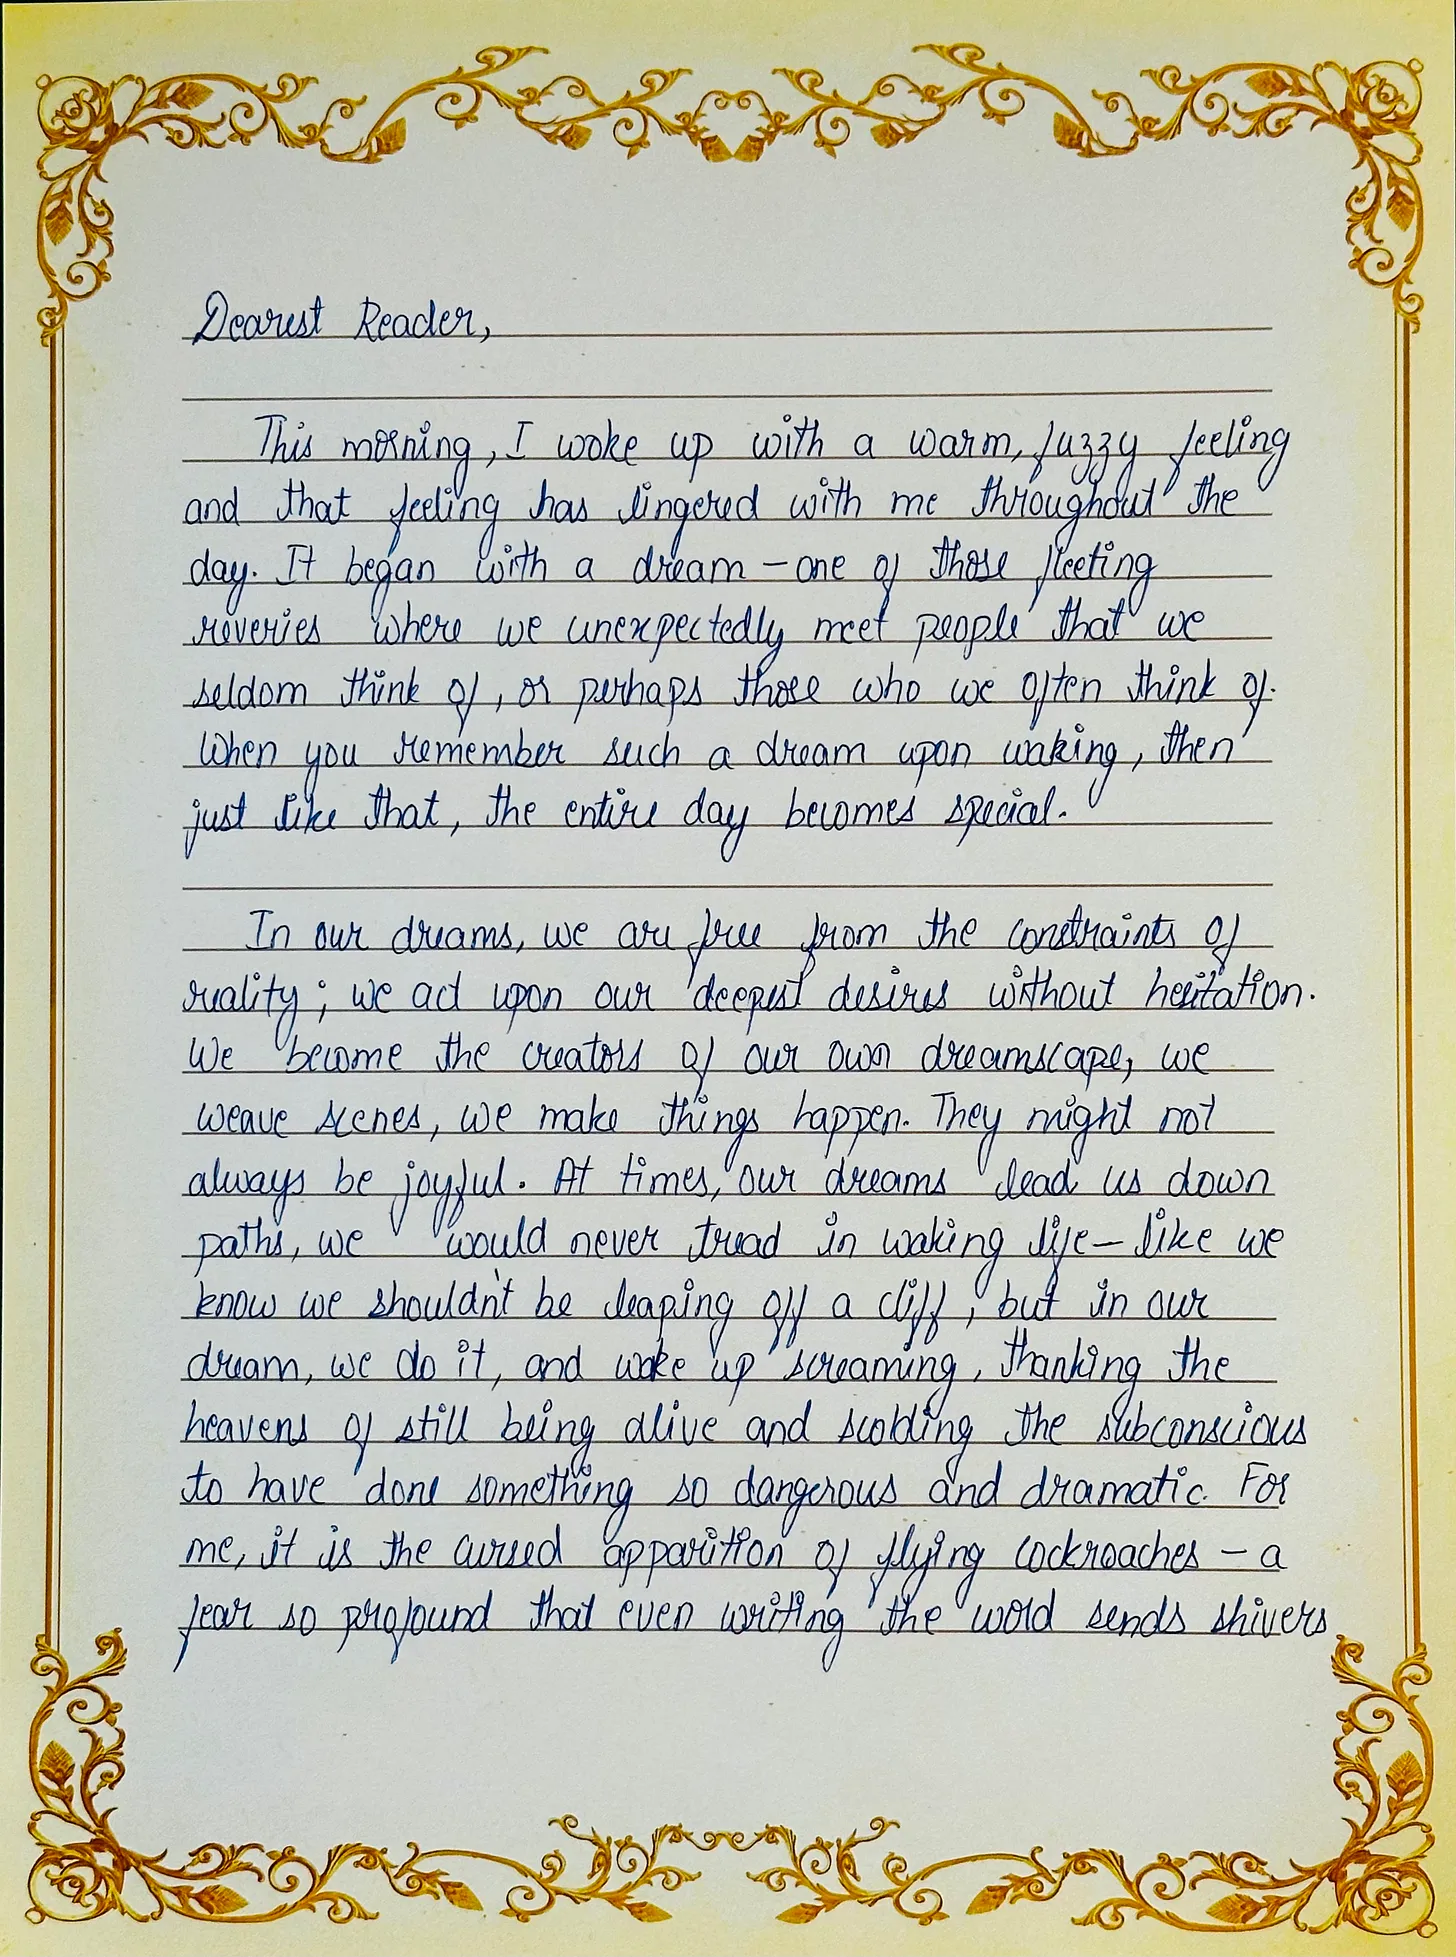 Dearest Reader,
This morning, I woke up with a warm, fuzzy feeling
and that feeling has lingered with me throughout the
day. It began with a dream – one of those fleeting
reveries where we unexpectedly meet people that we
seldom think of, or perhaps those who we often think of.
When you remember such a dream upon waking, then
just like that, the entire day becomes special.
In our dreams, we are free from the constraints of
reality; we act upon our deepest desires without hesitation.
We become the creators of our own dreamscape, we
weave scenes, we make things happen. They might not
always be joyful. At times, our dreams lead us down
paths, we would never tread in waking life – like we
know we shouldn't be leaping off a cliff, but in our
dream, we do it, and wake up screaming, thanking the
heavens of still being alive and scolding the subconscious
to have done something so dangerous and dramatic. For
me, it is the cursed apparition of flying cockroaches – a
fear so profound that even writing the word sends shivers